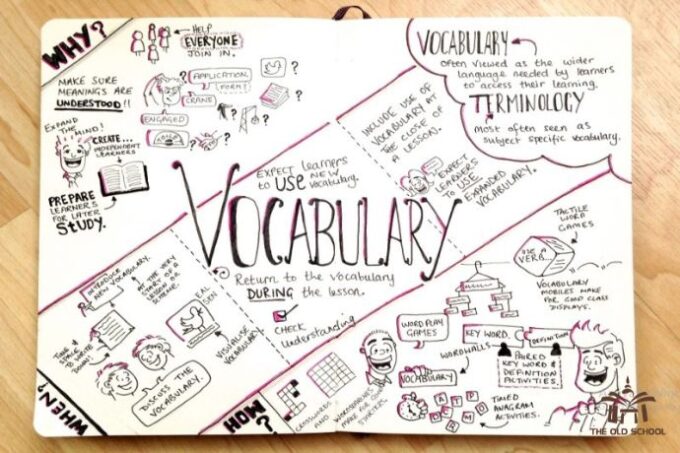 WHY?
HELP
EVERYONE
JOIN IN.
MAKE SURE
MEANINGS ARE
UNDERSTOOD!!
APPLICATION
(FORM?)
CRANE
ENGAGED
? ? ? ? ? ? ? ?
EXPAND
THE MIND!
CREATE...
INDEPENDENT
LEARNERS
PREPARE
LEARNERS
FOR LATER
STUDY.
VOCABULARY
Often viewed as the wider
language needed by learners
to access their learning.
TERMINOLOGY
Most often seen as
subject specific vocabulary.
INCLUDE USE OF
VOCABULARY AT
THE CLOSE OF
A LESSON.
EXPECT
LEARNERS
TO USE
EXPANDED
VOCABULARY.
EXPECT learners
to USE new
vocabulary.
VOCABULARY
Return to the vocabulary
DURING the lesson.
CHECK
Understanding
INTRODUCE
NEW VOCABULARY.
THE VERY
START OF A
LESSON OR
SCHEME.
TIME &
SPACE
TO WRITE
DOWN!
VISUALISE
VOCABULARY
DISCUSS THE
VOCABULARY.
WHEN?
HOW?
CROSSWORDS
AND
WORDSEARCHES
MAKE FOR GOOD
STARTERS.
WORDPLAY
GAMES
WORDWALLS
VOCABULARY
TIMED
ANAGRAM
ACTIVITIES.
KEY WORD
DEFINITION
PAIRED
KEY WORD &
DEFINITION
ACTIVITIES.
TACTILE
WORD
GAMES
USE A
VERB...
VOCABULARY
MOBILES MAKE
FOR GOOD CLASS
DISPLAYS.
THE OLD SCHOOL